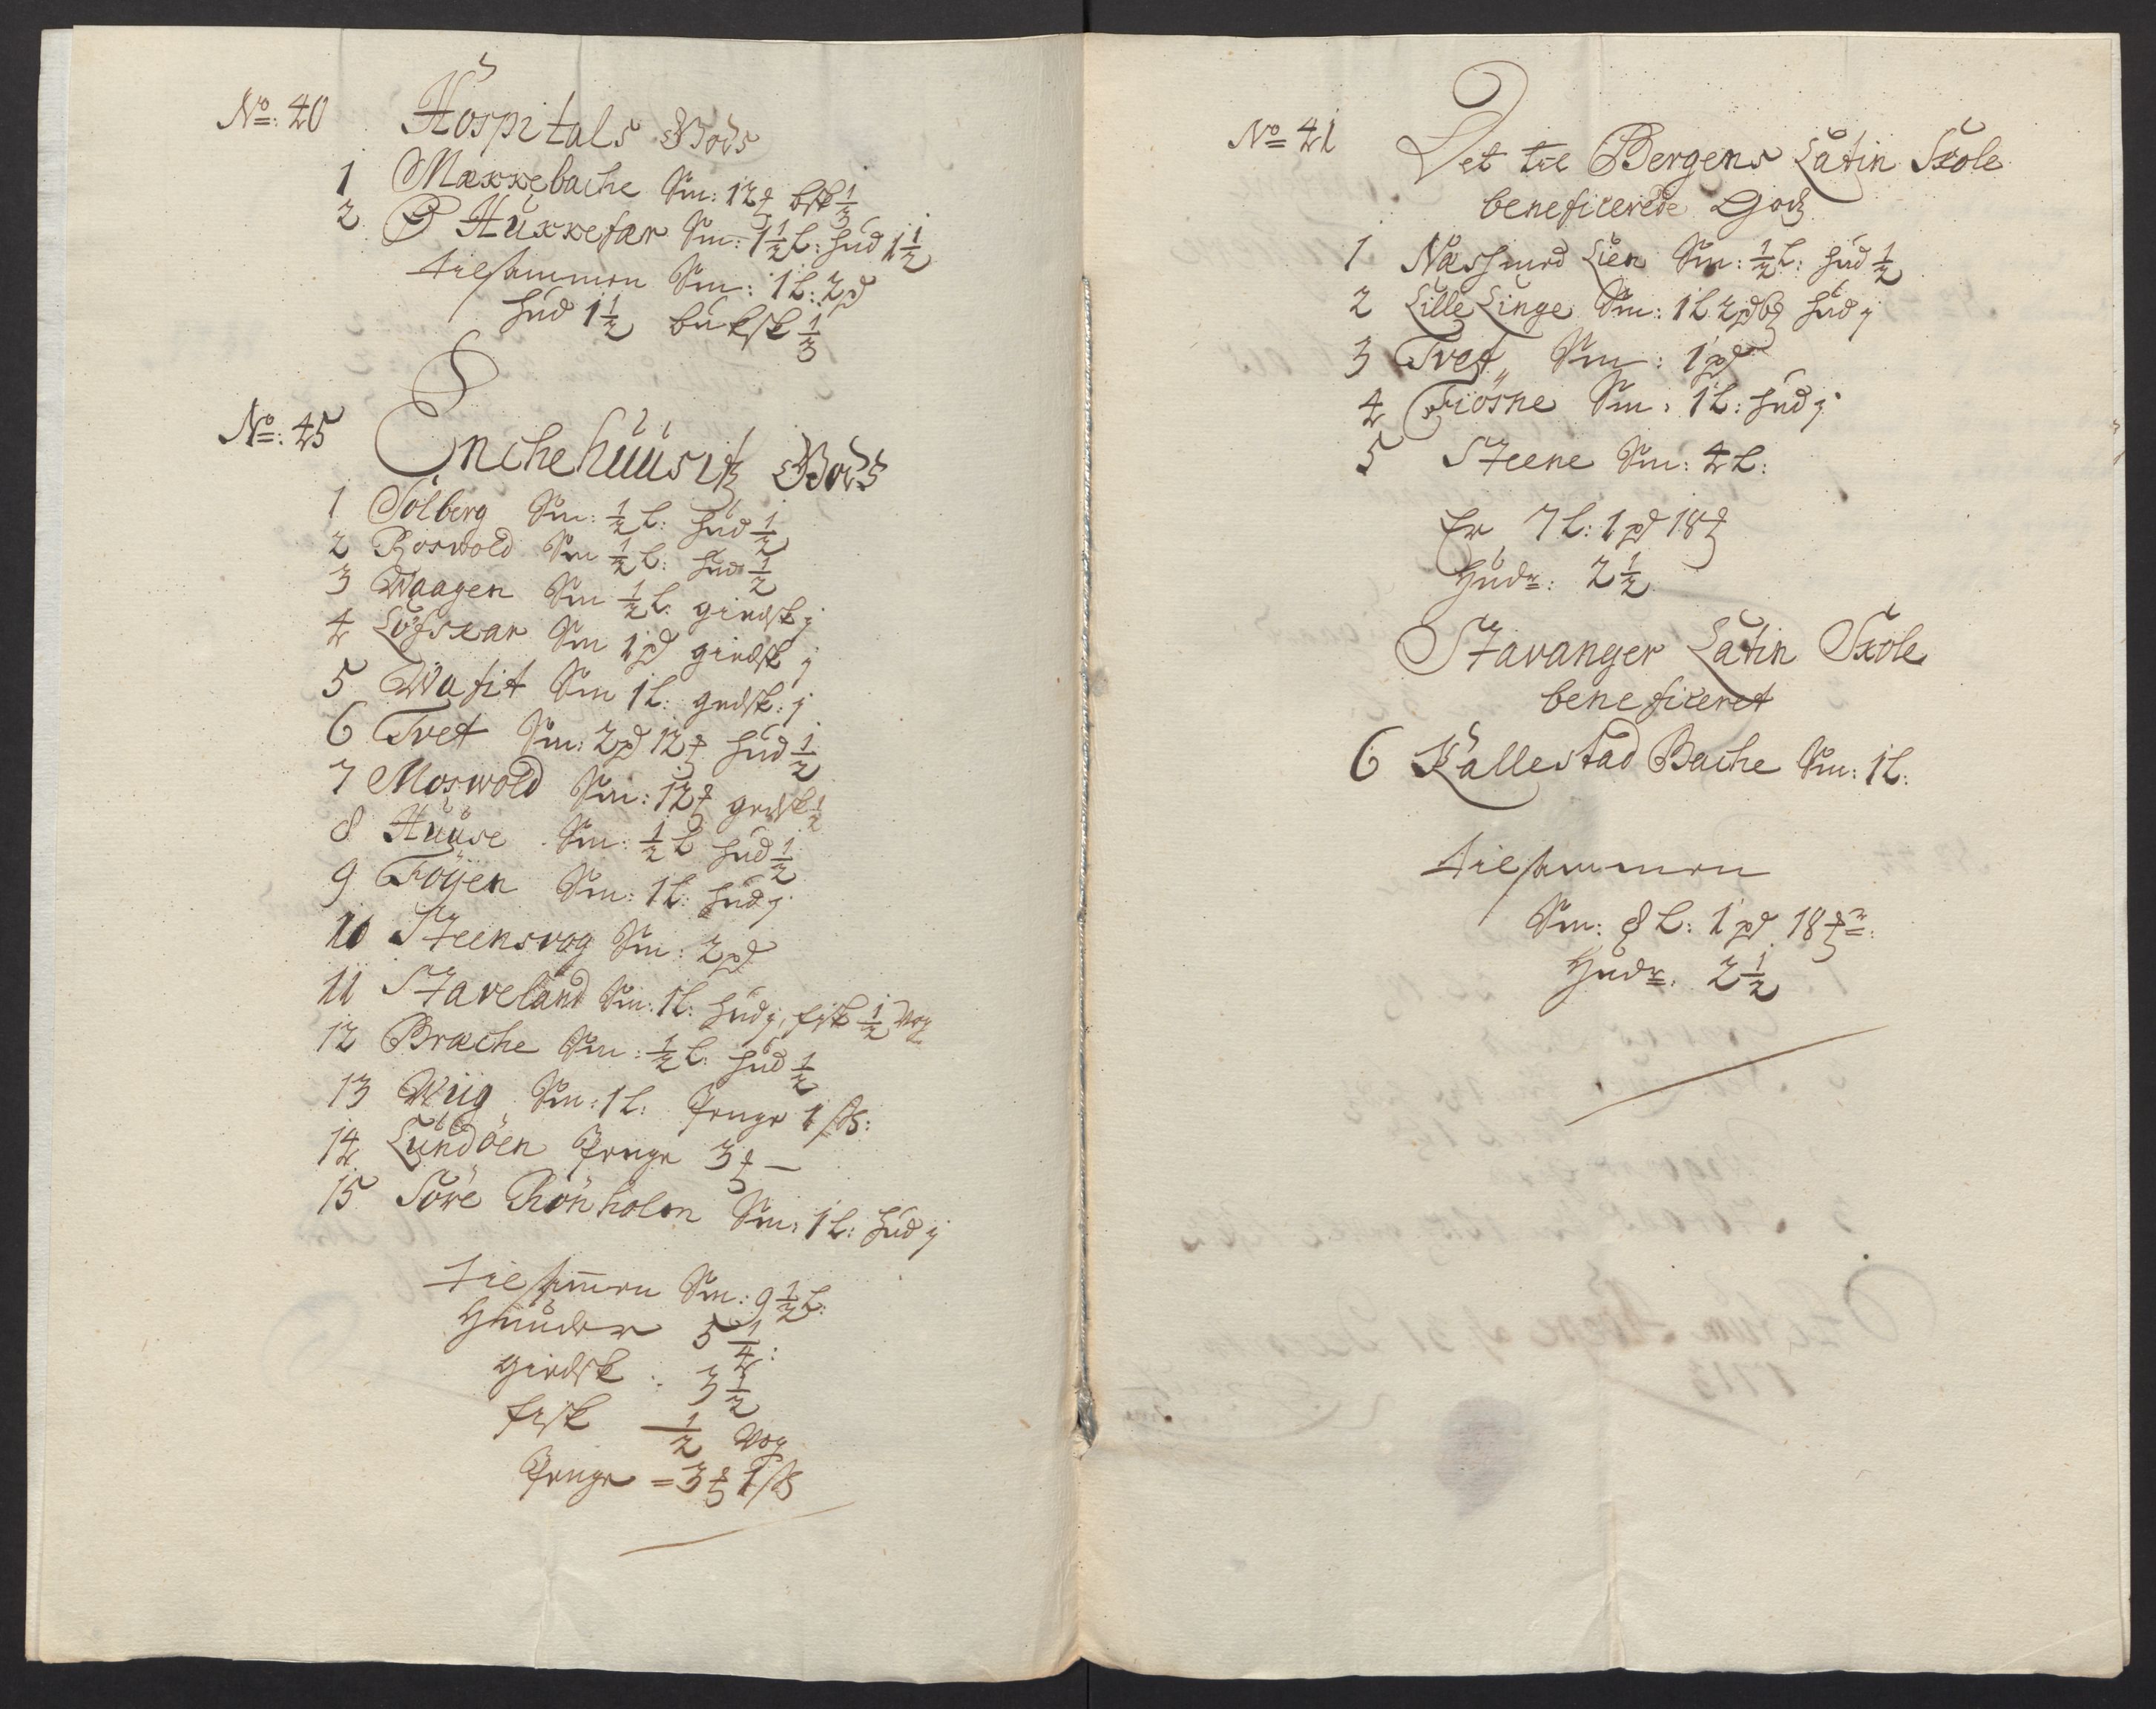 No: 40 Hospitals Gods
1 Mækkebache Sm: 12 ℔ bsk ⅓
2 Hukkefær Sm: 1½ L: hud 1½
tilsammen Sm: 1 L: 2 pd
hud 1½ buksk ⅓
No: 45 Enchehuusitz Gods
1 Solberg Sm: ½ L: hud ½
2 Roswold Sm ½ L: hud ½
3 Waagen Sm ½ L. giedsk j
4 Löfskar Sm 1 pd giedsk j
5 Watit Sm 1 L: gedsk: j
6 Tvet Sm: 2 pd 12 ℔ hud ½
7 Moswold Sm: 12 ℔ gedsk ½
8 Huuse Sm: ½ L hud ½
9 Föyen Sm: 1 L: hud j
10 Steensvog Sm: 2 pd
11 Staveland Sm: 1 L: hud j, fisk ½ Vog
12 Bræche Sm: ½ L: hud ½
13 Wiig Sm: 1 L: Penge 1 ß:
14 Lundöen Penge 3 ℔ —
15 Söre Rönholm Sm: 1 L: hud j
tilsam̄en Sm: 9½ L:
Huuder 5¼:
giedsk: 3½
fisk ½ Vog
Penge = 3 ℔ 1 ß
No 41 Det til Bergens Latin Skole
beneficerede Godz
1 Næss med Lien Sm: ½ L: hud ½
2 Lille Linge Sm: 1 L 2 pd 6 ℔ hud j
3 Tvet Sm: 1 pd
4 Fiösne Sm: 1 L: hud j
5 Steene Sm: 4 L:
Er 7 L: 1 pd 18 ℔
Hudr: 2½
Stavanger Latin Skole
beneficeret
6 Kallestad Bache Sm: 1 L:
tilsammen
Sm: 8 L: 1 pd 18 ℔r:
Hudr. 2½